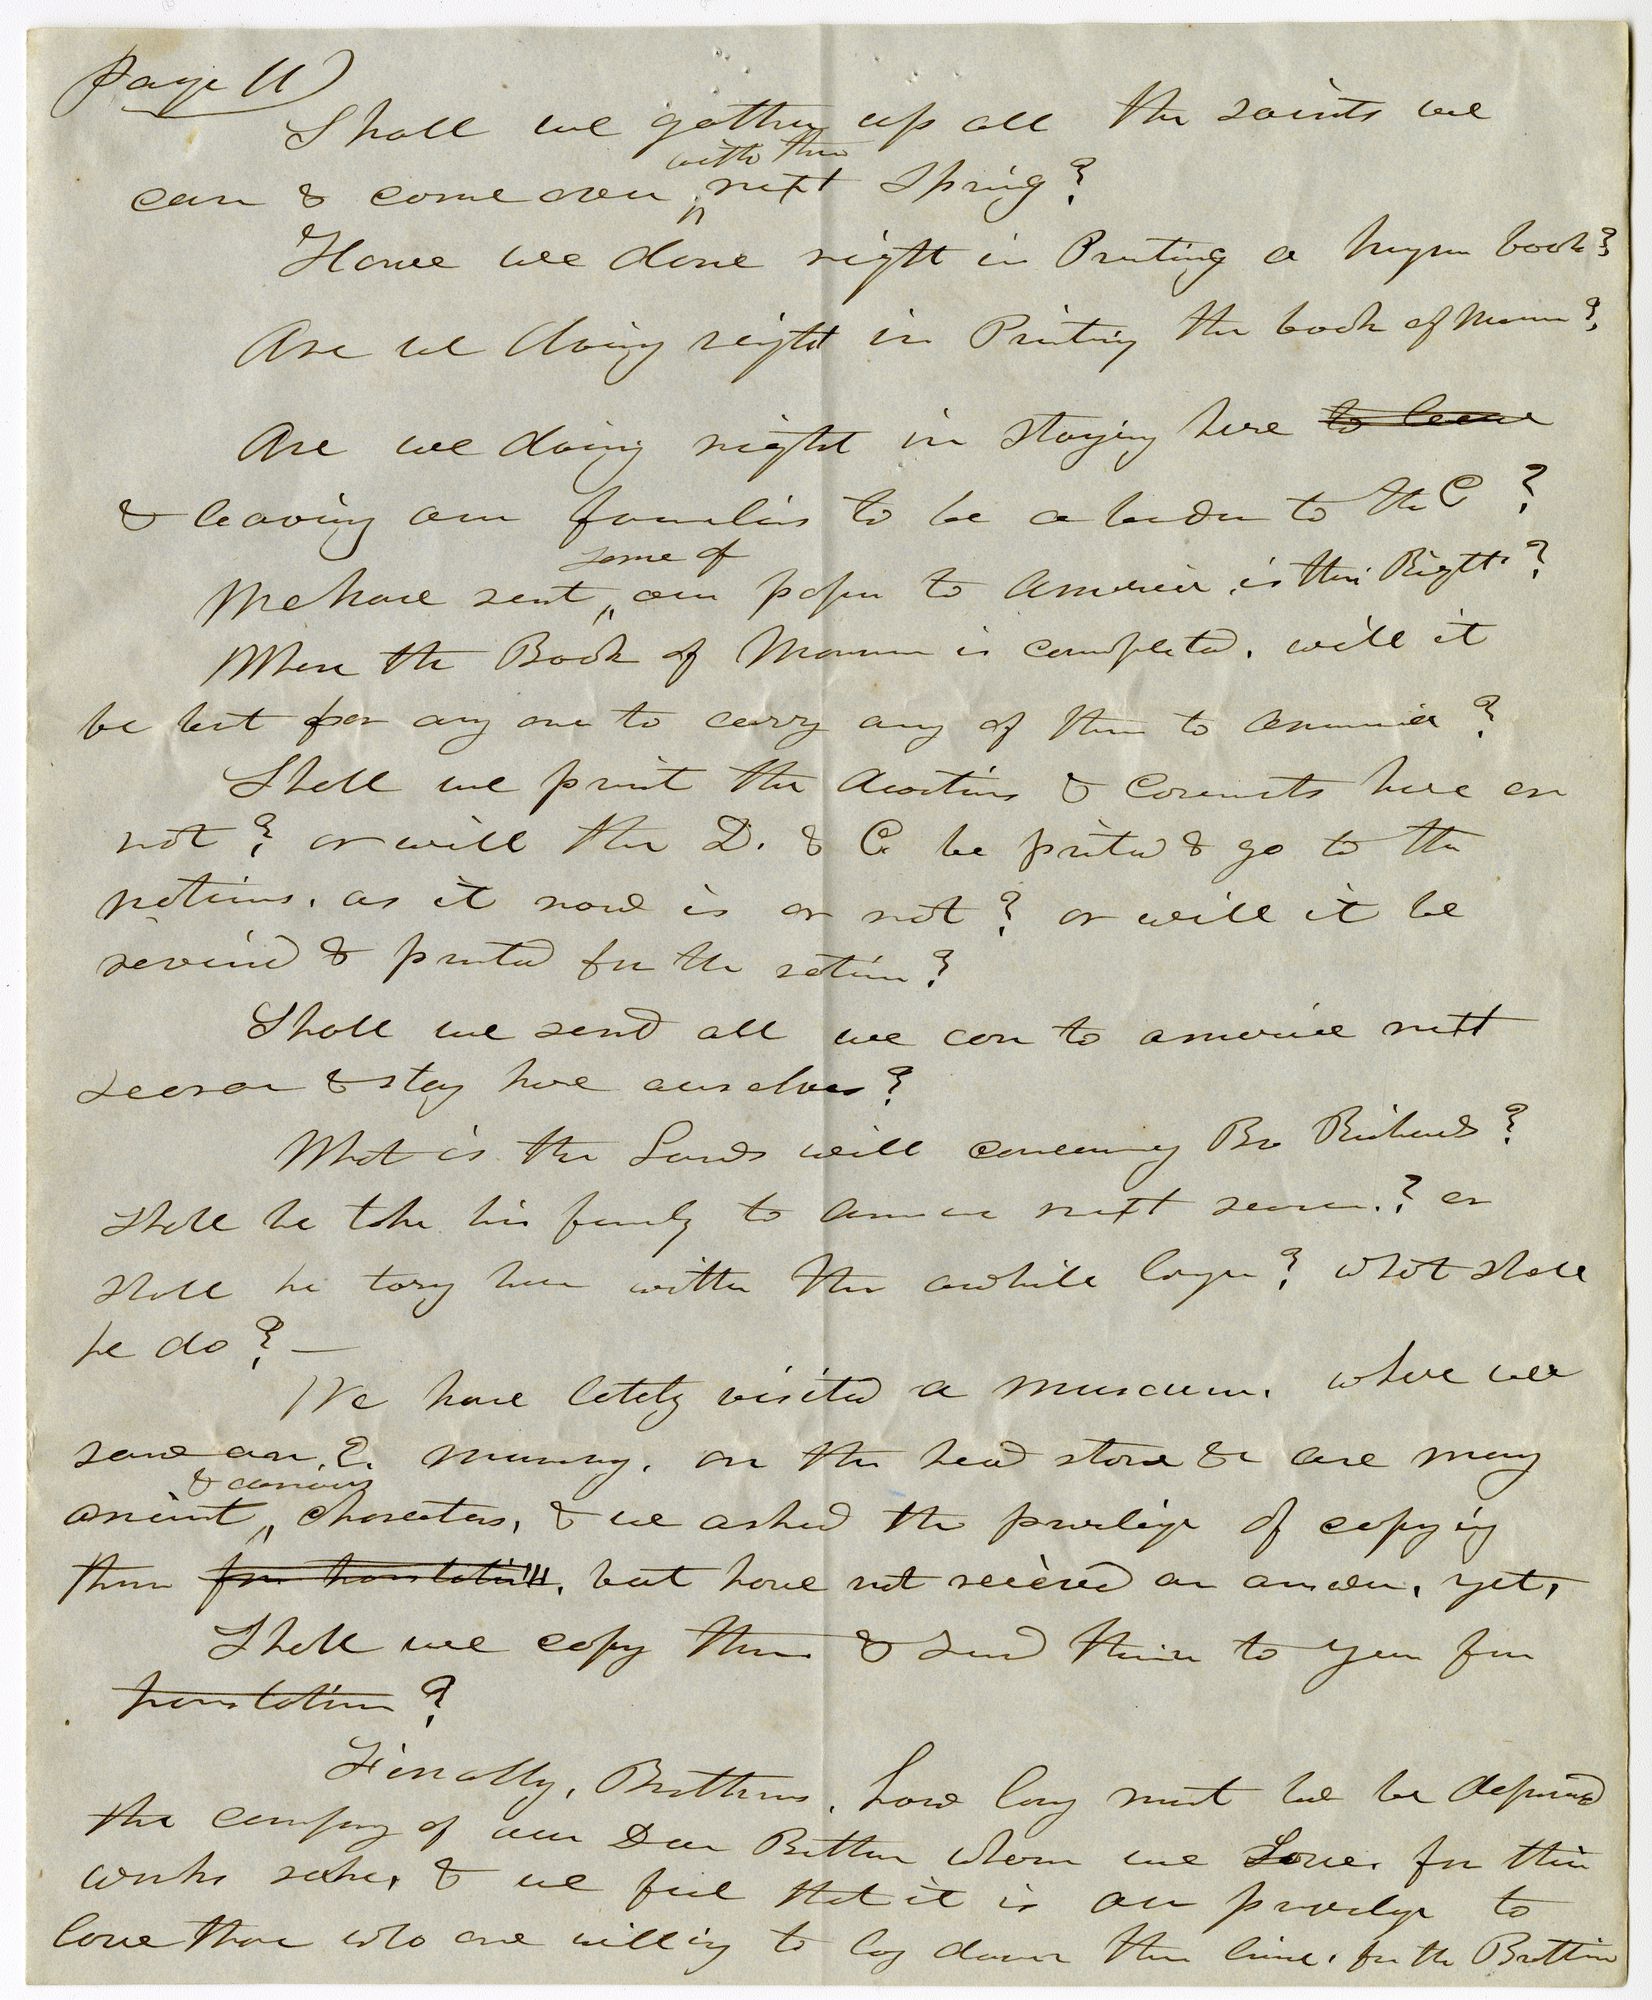 Page 11)
Shall we gather up all the saints we
with them
can & come over next Spring?
Have we done right in Printing a hymn book?
Are we doing right in Printing the book of Mormon?
Are we doing right in staying here to leave
& leaving our families to be a burden to the C?
some of
We have sent our paper to America, is this Right?
When the Book of Mormon is completed. will it
be best for any one to carry any of them to America?
Shall we print the doctrins & covenants here or
not? or will the D. & C. be printed & go to the
nations. as it now is or not? or will it be
revised & printed for the nation?
Shall we send all we can to america next
season & stay here ourselves?
What is the Lords will concerning Bro Richards?
shall he take his family to America next season.? or
shall he tary here with the awhile longer? what shall
he do? —
We have lately visited a museum. where we
saw an. E. mummy. on the head stone &c are many
& curious
ancient characters, & we asked the privilige of copying
them for translation, but have not recieved an answer, yet,
Shall we copy them & send them to you for
translation?
Finally, Brethren, how long must we be deprived
the company of our Dear Brethren whom we Love. for their
works sake, & we feel that it is our privilege to
love those who are willing to lay down their lives. for the Brethren